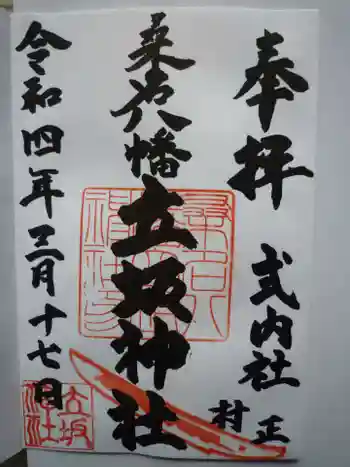 奉拝
式内社
村正
桑名八幡
立坂神社
令和四年三月十七日
立坂
神社